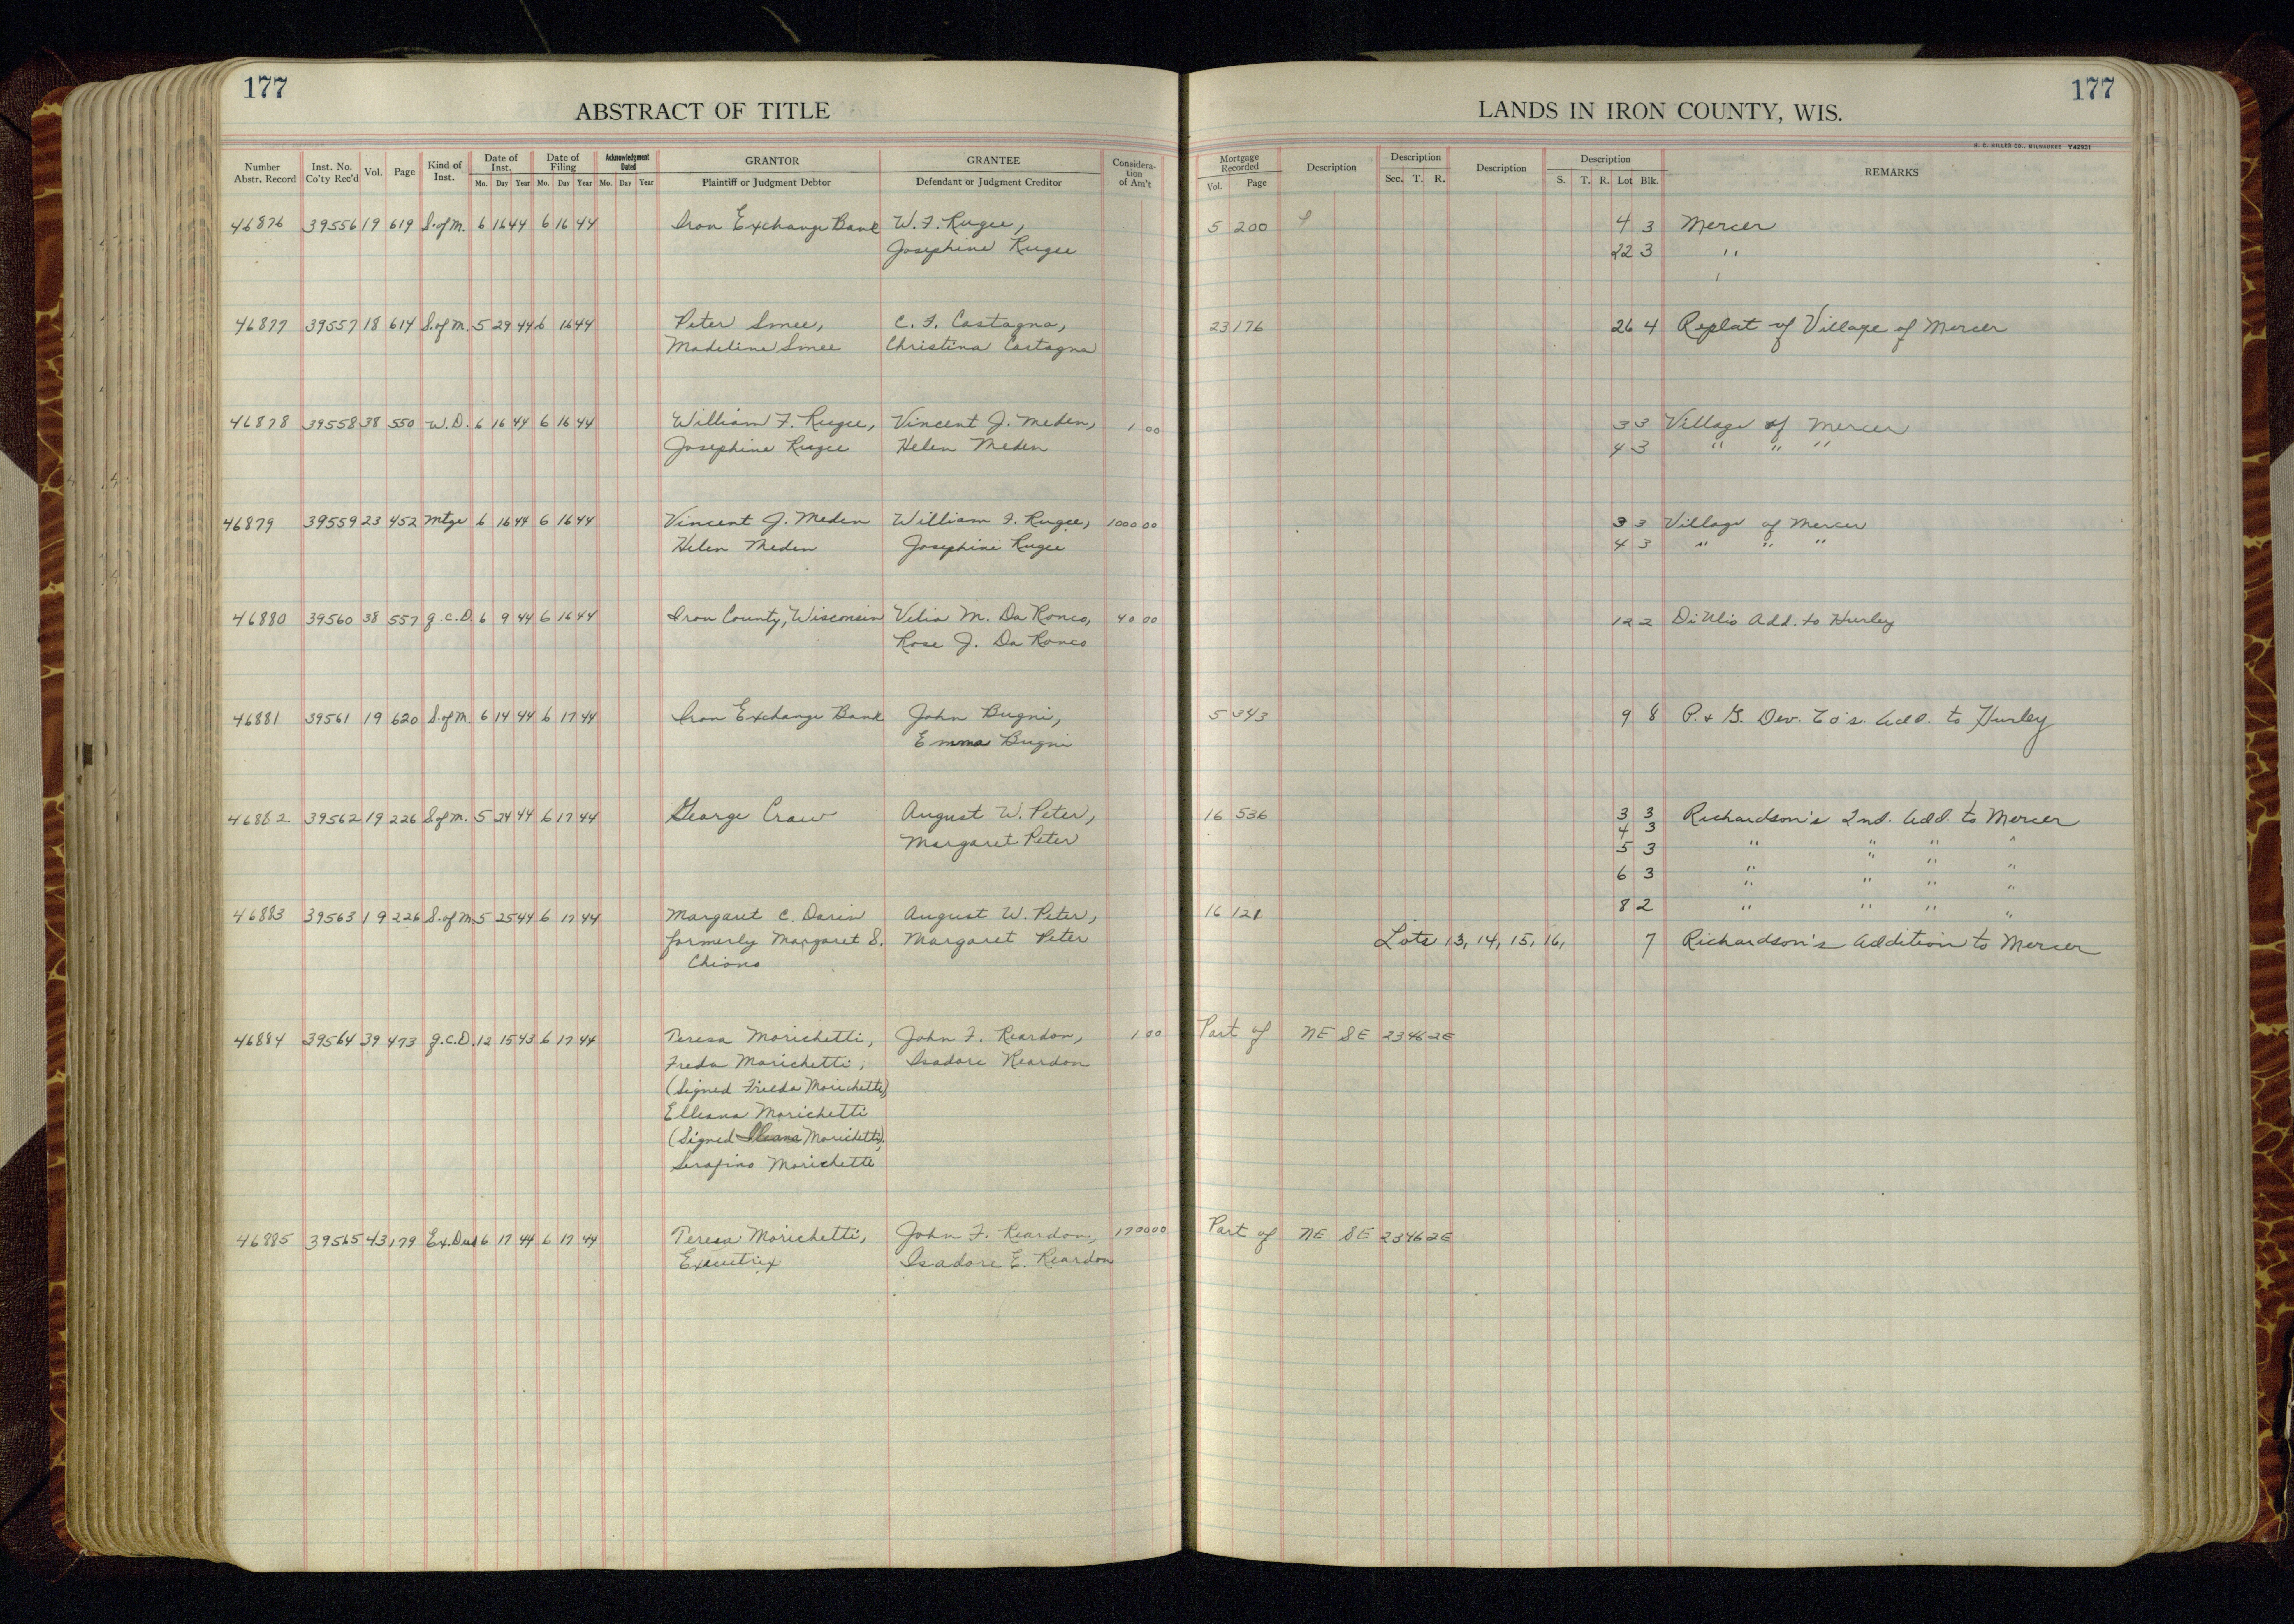 177
ABSTRACT OF TITLE
Number Abstr. Record | Inst. No. Co'ty Rec'd | Vol. | Page | Kind of Inst. | Date of Inst. Mo. Day Year | Date of Filing Mo. Day Year | Acknowledgment Dated Mo. Day Year | GRANTOR Plaintiff or Judgment Debtor | GRANTEE Defendant or Judgment Creditor | Considera-tion of Am't
46876 39556 19 619 S. of M. 6 16 44 6 16 44 Iron Exchange Bank W. F. Rugee,
Josephine Rugee
46877 39557 18 614 S. of M. 5 29 44 6 16 44 Peter Smee, C. F. Castagna,
Madeline Smee Christina Castagna
46878 39558 38 550 W. D. 6 16 44 6 16 44 William F. Rugee, Vincent J. Meden, 1 00
Josephine Rugee Helen Meden
46879 39559 23 452 Mtge 6 16 44 6 16 44 Vincent J. Meden William F. Rugee, 1000 00
Helen Meden Josephine Rugee
46880 39560 38 557 Q. C. D. 6 9 44 6 16 44 Iron County, Wisconsin Velia M. Da Ronco, 40 00
Rose J. Da Ronco
46881 39561 19 620 S. of M. 6 14 44 6 17 44 Iron Exchange Bank John Bugni,
Emma Bugni
46882 39562 19 226 S. of M. 5 24 44 6 17 44 George Craw August W. Peter,
Margaret Peter
46883 39563 19 226 S. of M. 5 25 44 6 17 44 Margaret C. Darin August W. Peter,
formerly Margaret S. Margaret Peter
Chiono
46884 39564 39 473 Q. C. D. 12 15 43 6 17 44 Teresa Morichetti, John F. Reardon, 1 00
Freda Morichetti, Isadore Reardon
(Signed Frieda Morichetti)
Elleana Morichetti
(Signed Morichetti),
Serafino Morichetti
46885 39565 43 179 Ex. Deed 6 17 44 6 17 44 Teresa Morichetti, John F. Reardon, 1700 00
Executrix Isadore E. Reardon
177
LANDS IN IRON COUNTY, WIS.
H. C. MILLER CO., MILWAUKEE Y42931
Mortgage Recorded Vol. Page | Description | Description Sec. T. R. | Description | Description S. T. R. Lot Blk. | REMARKS
5 200 4 3 Mercer
22 3 "
23 176 26 4 Replat of Village of Mercer
3 3 Village of Mercer
4 3 " " "
3 3 Village of Mercer
4 3 " " "
12 2 Di Ulio Add. to Hurley
5 343 9 8 P. & G. Dev. Co's. Add. to Hurley
16 536 3 3 Richardson's 2nd. Add. to Mercer
4 3 " " " "
5 3 " " " "
6 3 " " " "
16 121 8 2 " " " "
Lots 13, 14, 15, 16, 7 Richardson's Addition to Mercer
Part of NE SE 23 46 2E
Part of NE SE 23 46 2E